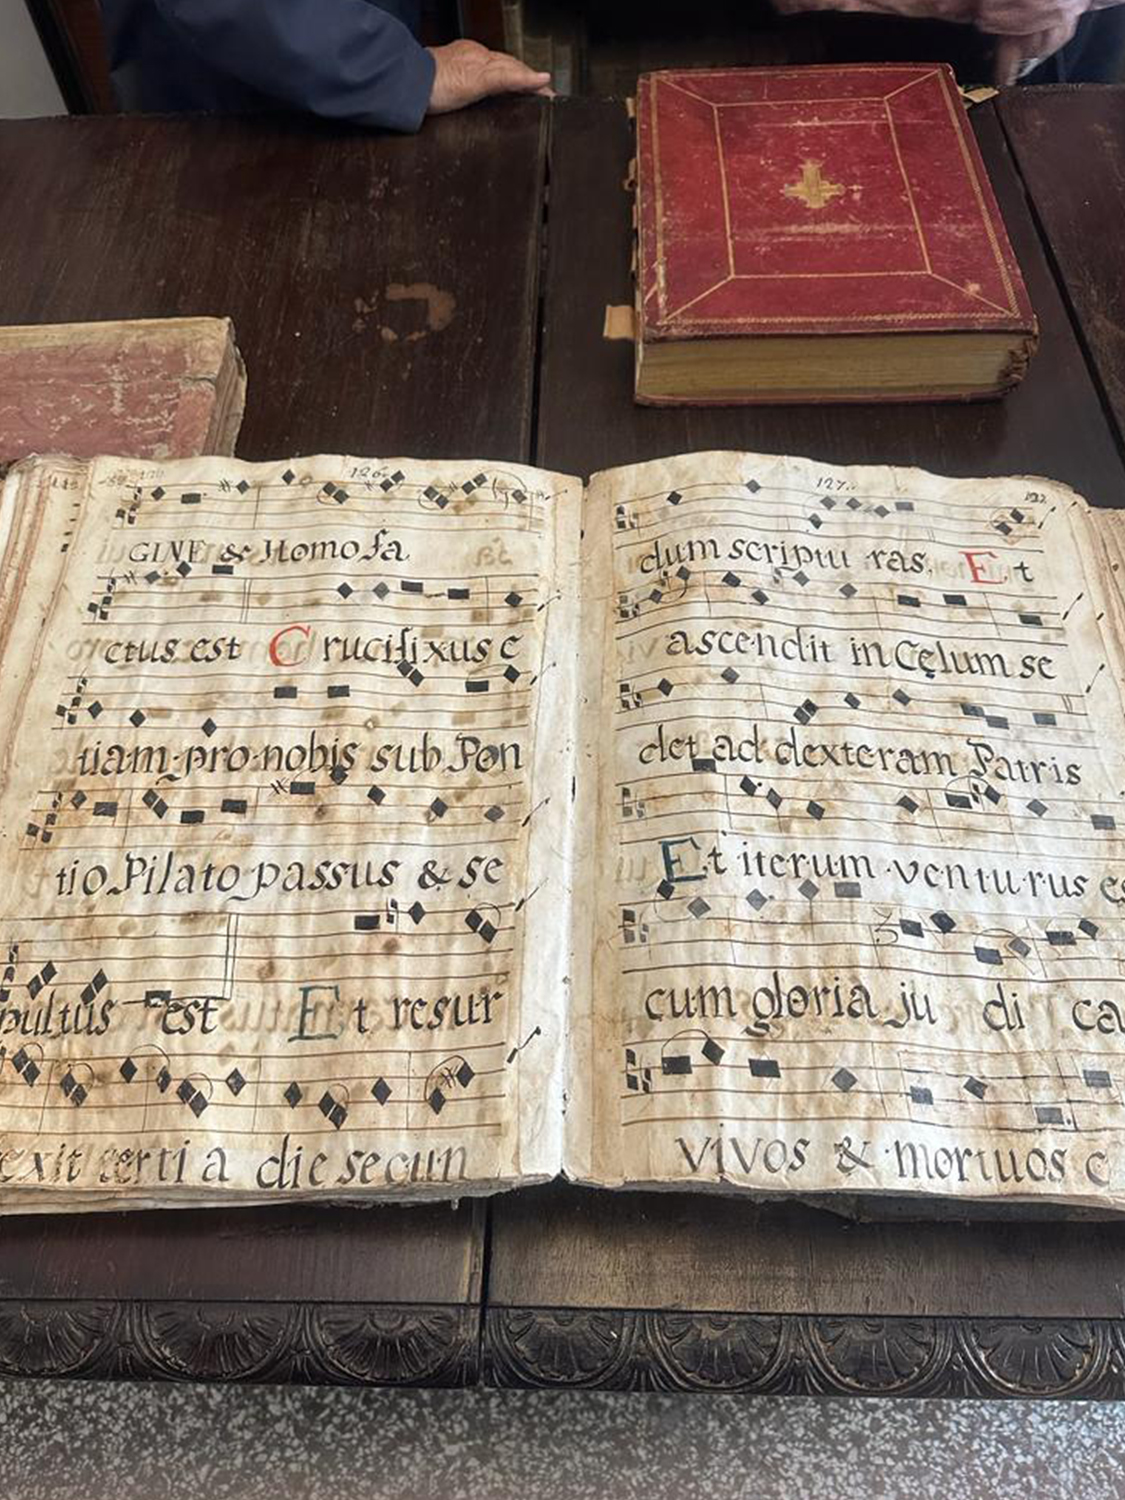 126.
GINE & Homo fa
ctus est Crucifixus e
tiam pro nobis sub Pon
tio Pilato passus & se
pultus est Et resur
exit terti a die secun
127.
dum scriptu ras. Et
ascendit in Cęlum se
det ad dexteram Patris
Et iterum venturus es
cum gloria ju di ca
vivos & mortuos c